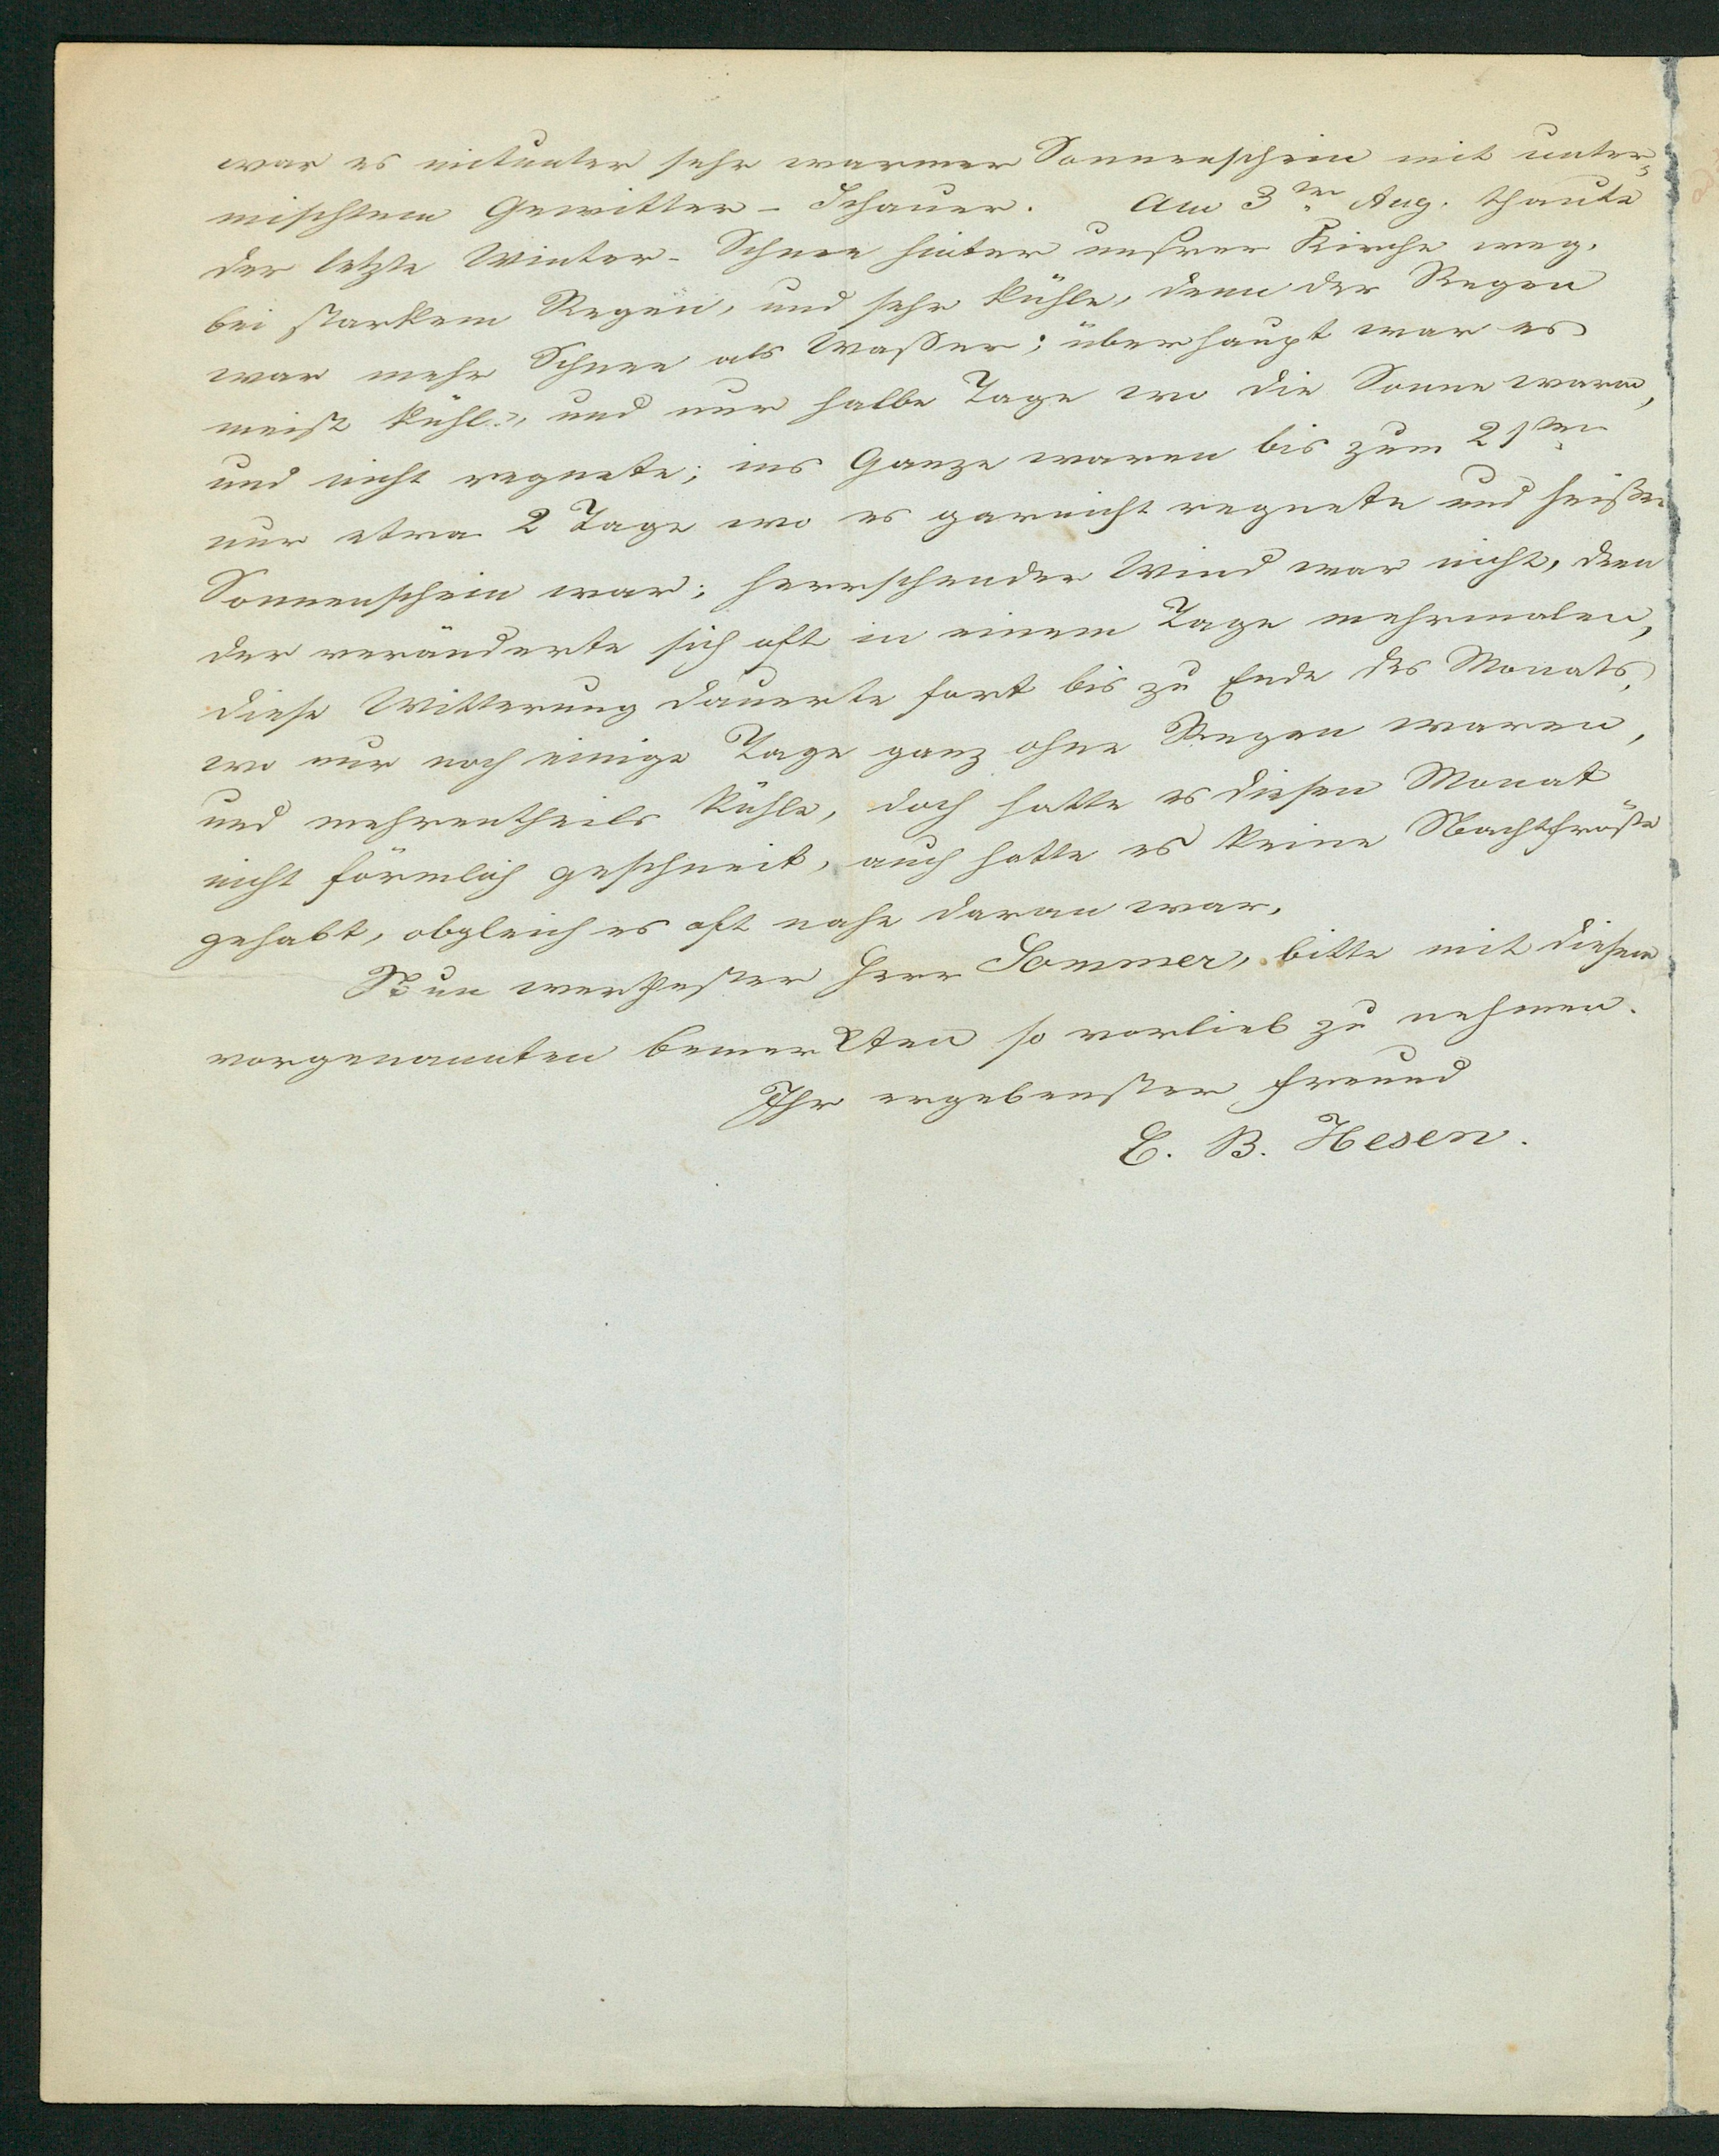 war es mitunter sehr warmer Sonnenschein mit unter-
mischtem Gewitter-Schauer. Am 3ten Aug. thaute
der letzte Winter-Schnee hinter unsrer Kirche weg,
bei starkem Regen, und sehr kühle, denn der Regen
war mehr Schnee als Wasser; überhaupt war es
meist kühl, und nur halbe Tage wo die Sonne warm,
und nicht regnete; ins Ganze waren bis zum 21sten
nur etwa 2 Tage wo es garnicht regnete und heißer
Sonnenschein war; herrschender Wind war nicht, den
der veränderte sich oft in einem Tage mehrmalen,
diese Witterung dauerte fort bis zu Ende des Monats,
wo nur noch einige Tage ganz ohne Regen waren,
und mehrentheils kühle, doch hatte es diesen Monat
nicht förmlich geschneit, auch hatte es keine Nachtfröste
gehabt, obgleich es oft nahe daran war.
Nun werthester Herr Sommer, bitte mit diesem
vorgenannten bemerkten so vorlieb zu nehmen.
Ihr ergebenster Freund
C. B. Hesen.